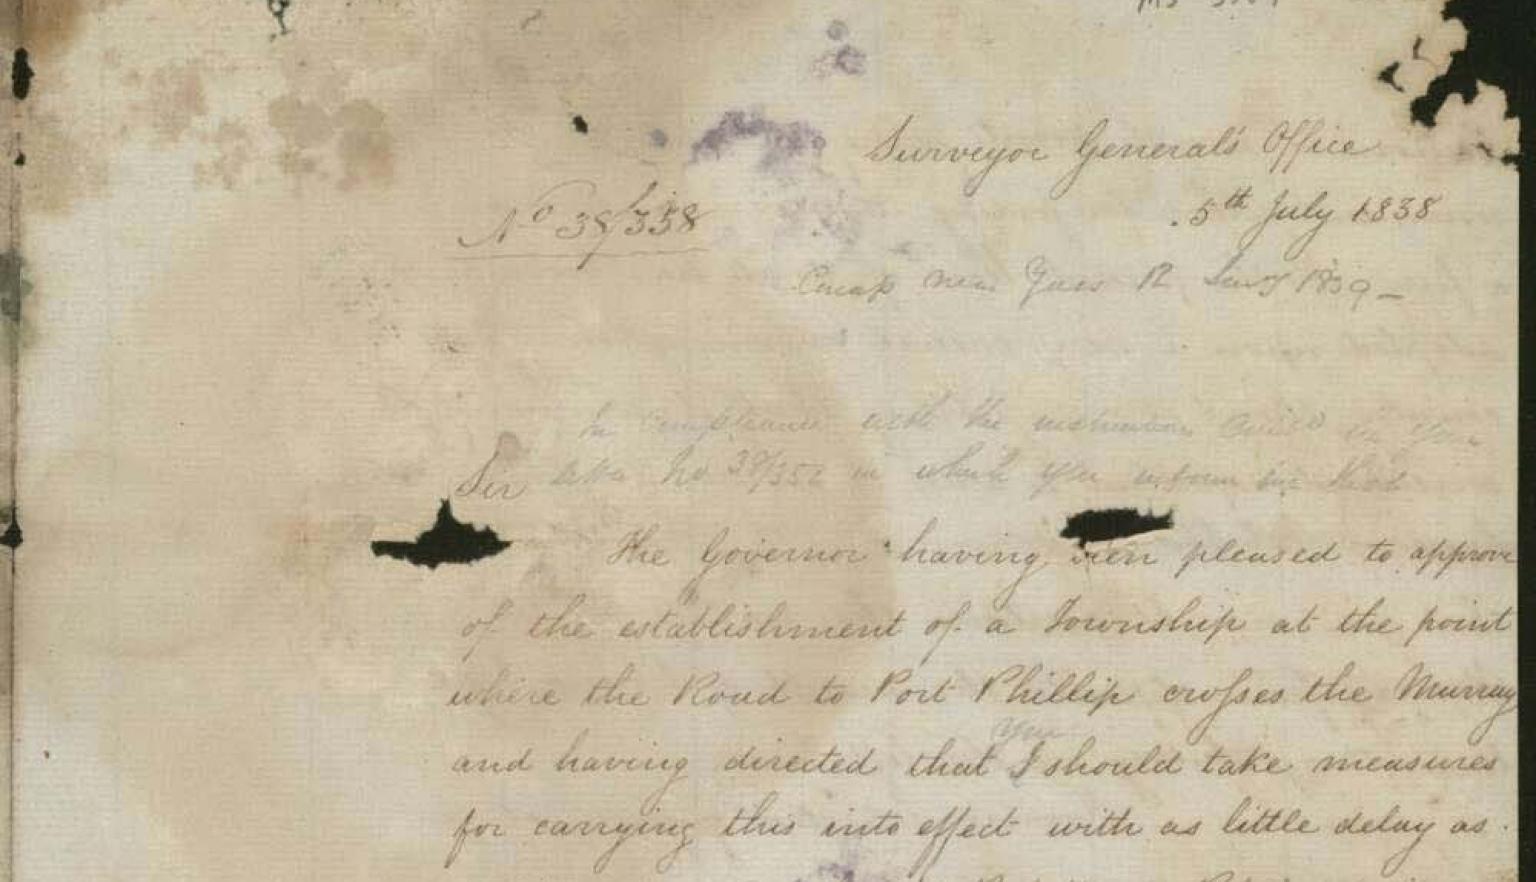 Surveyor General's Office
No 38/358
5th July 1838
Camp near Yass 12 Jany 1839 -
In compliance with the instructions in your
Sir
letter No 38/352 in which you inform me that
The Governor having been pleased to approve
of the establishment of a Township at the point
where the Road to Port Phillip crosses the Murray
you
and having directed that I should take measures
for carrying this into effect with as little delay as